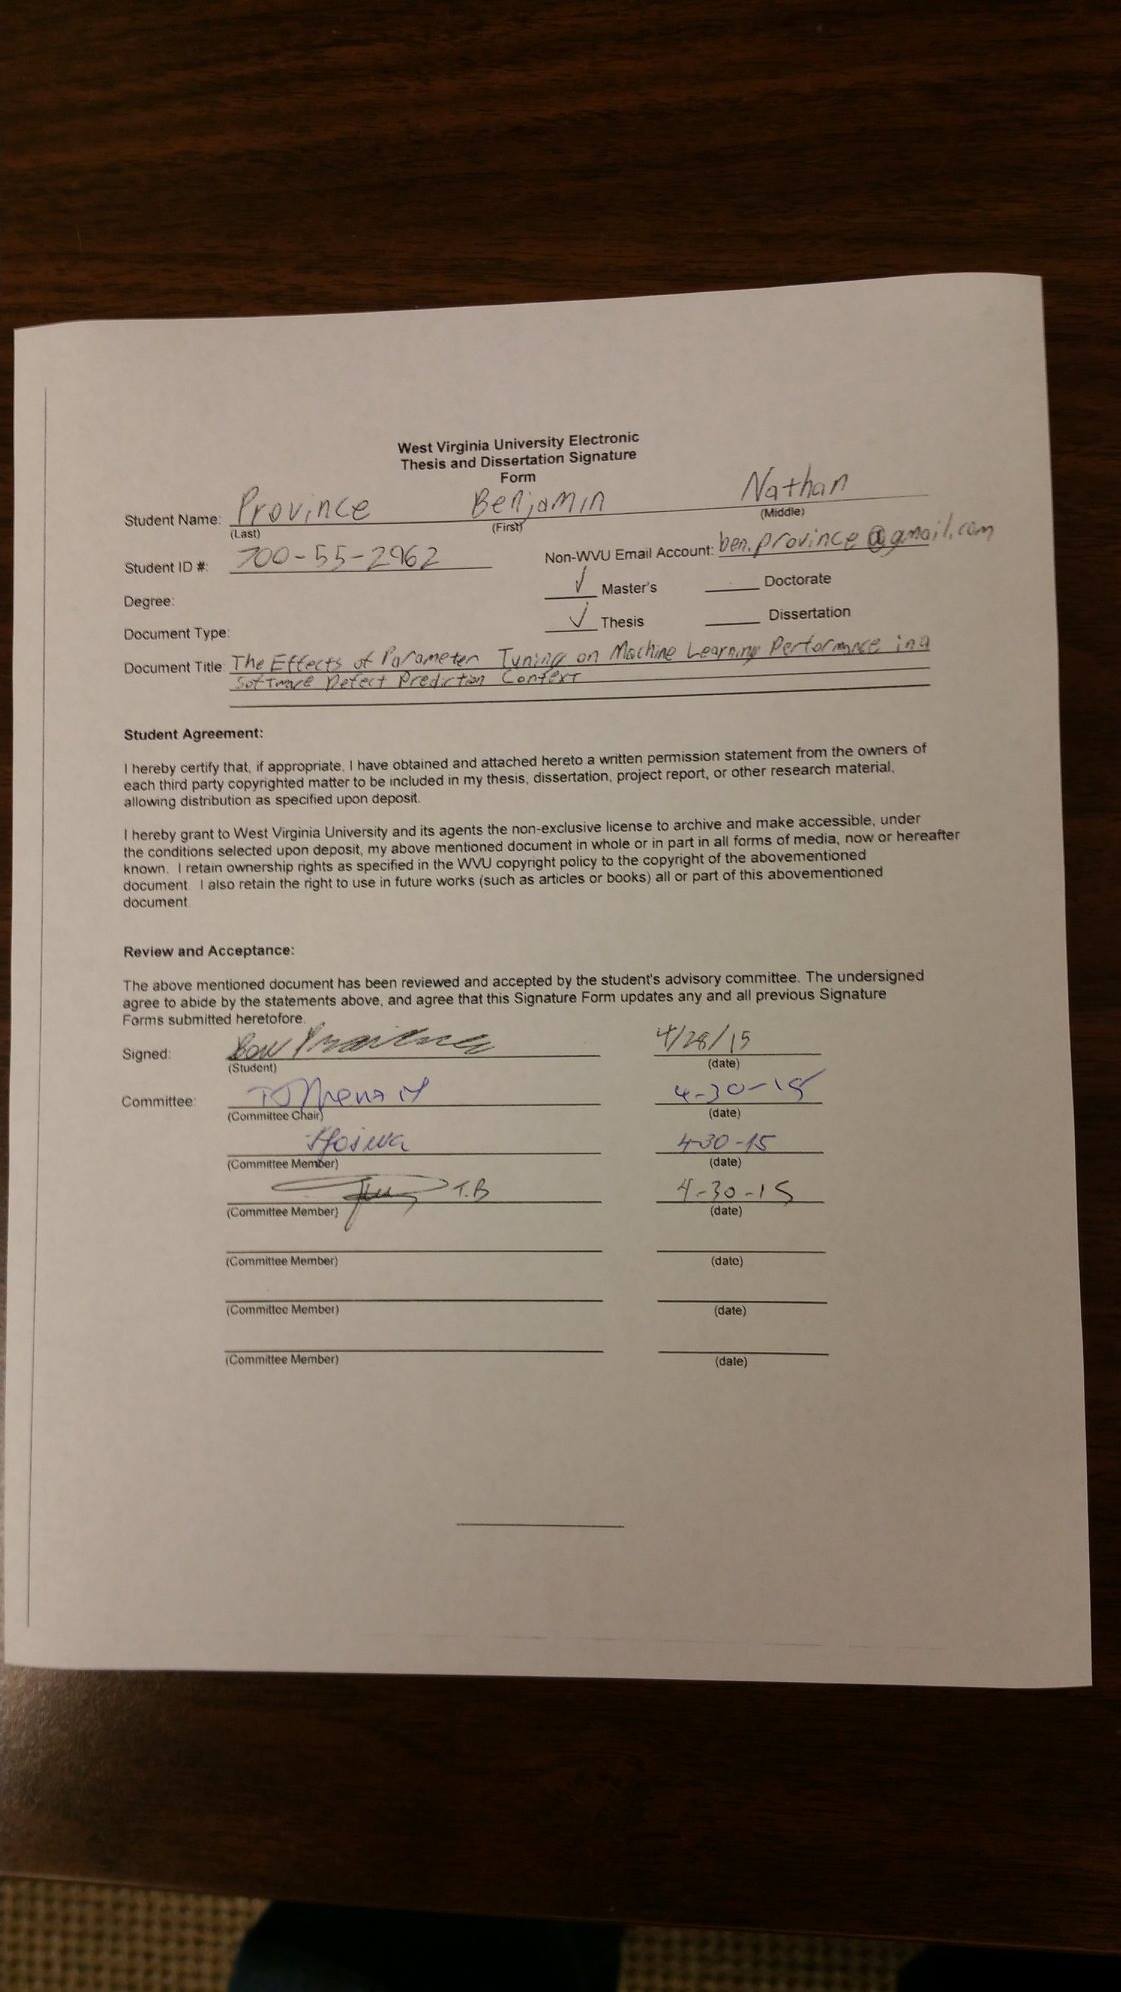 West Virginia University Electronic
Thesis and Dissertation Signature
Form
Student Name: Province Benjamin Nathan
(Last) (First) (Middle)
Student ID #: 700-55-2962 Non-WVU Email Account: ben.province@gmail.com
Degree: ✓ Master's Doctorate
Document Type: ✓ Thesis Dissertation
Document Title: The Effects of Parameter Tuning on Machine Learning Performance in a
Software Defect Prediction Context
Student Agreement:
I hereby certify that, if appropriate, I have obtained and attached hereto a written permission statement from the owners of
each third party copyrighted matter to be included in my thesis, dissertation, project report, or other research material,
allowing distribution as specified upon deposit.
I hereby grant to West Virginia University and its agents the non-exclusive license to archive and make accessible, under
the conditions selected upon deposit, my above mentioned document in whole or in part in all forms of media, now or hereafter
known. I retain ownership rights as specified in the WVU copyright policy to the copyright of the abovementioned
document. I also retain the right to use in future works (such as articles or books) all or part of this abovementioned
document.
Review and Acceptance:
The above mentioned document has been reviewed and accepted by the student's advisory committee. The undersigned
agree to abide by the statements above, and agree that this Signature Form updates any and all previous Signature
Forms submitted heretofore.
Signed: Ben Province 4/28/15
(Student) (date)
Committee: 4-30-15
(Committee Chair) (date)
4-30-15
(Committee Member) (date)
T.B 4-30-15
(Committee Member) (date)
(Committee Member) (date)
(Committee Member) (date)
(Committee Member) (date)